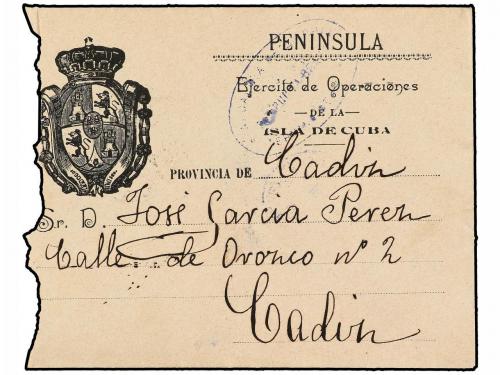 PENINSULA
Ejercito de Operaciones
DE LA
ISLA DE CUBA
PROVINCIA DE Cadiz
Sr. D. José Garcia Perez
Calle de Oronco nº 2
Cadiz